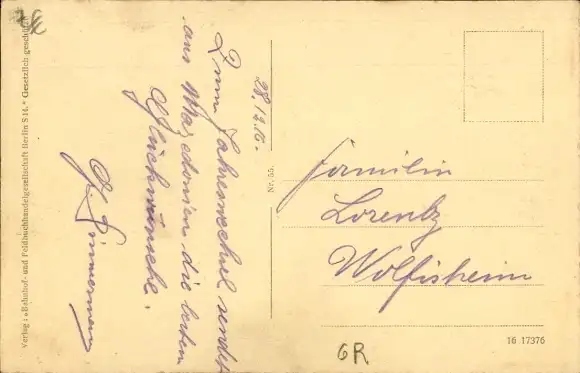 28.12.16.
Zum Jahreswechsel sendet
aus Mazedonien die besten
Glückwünsche.
Zimmermann
Familie
Lorentz
Wolfisheim
Nr. 55.
16 17376
GR
Verlag: »Bahnhof- und Feldbuchhandelgesellschaft Berlin S 14.« Gesetzlich geschützt